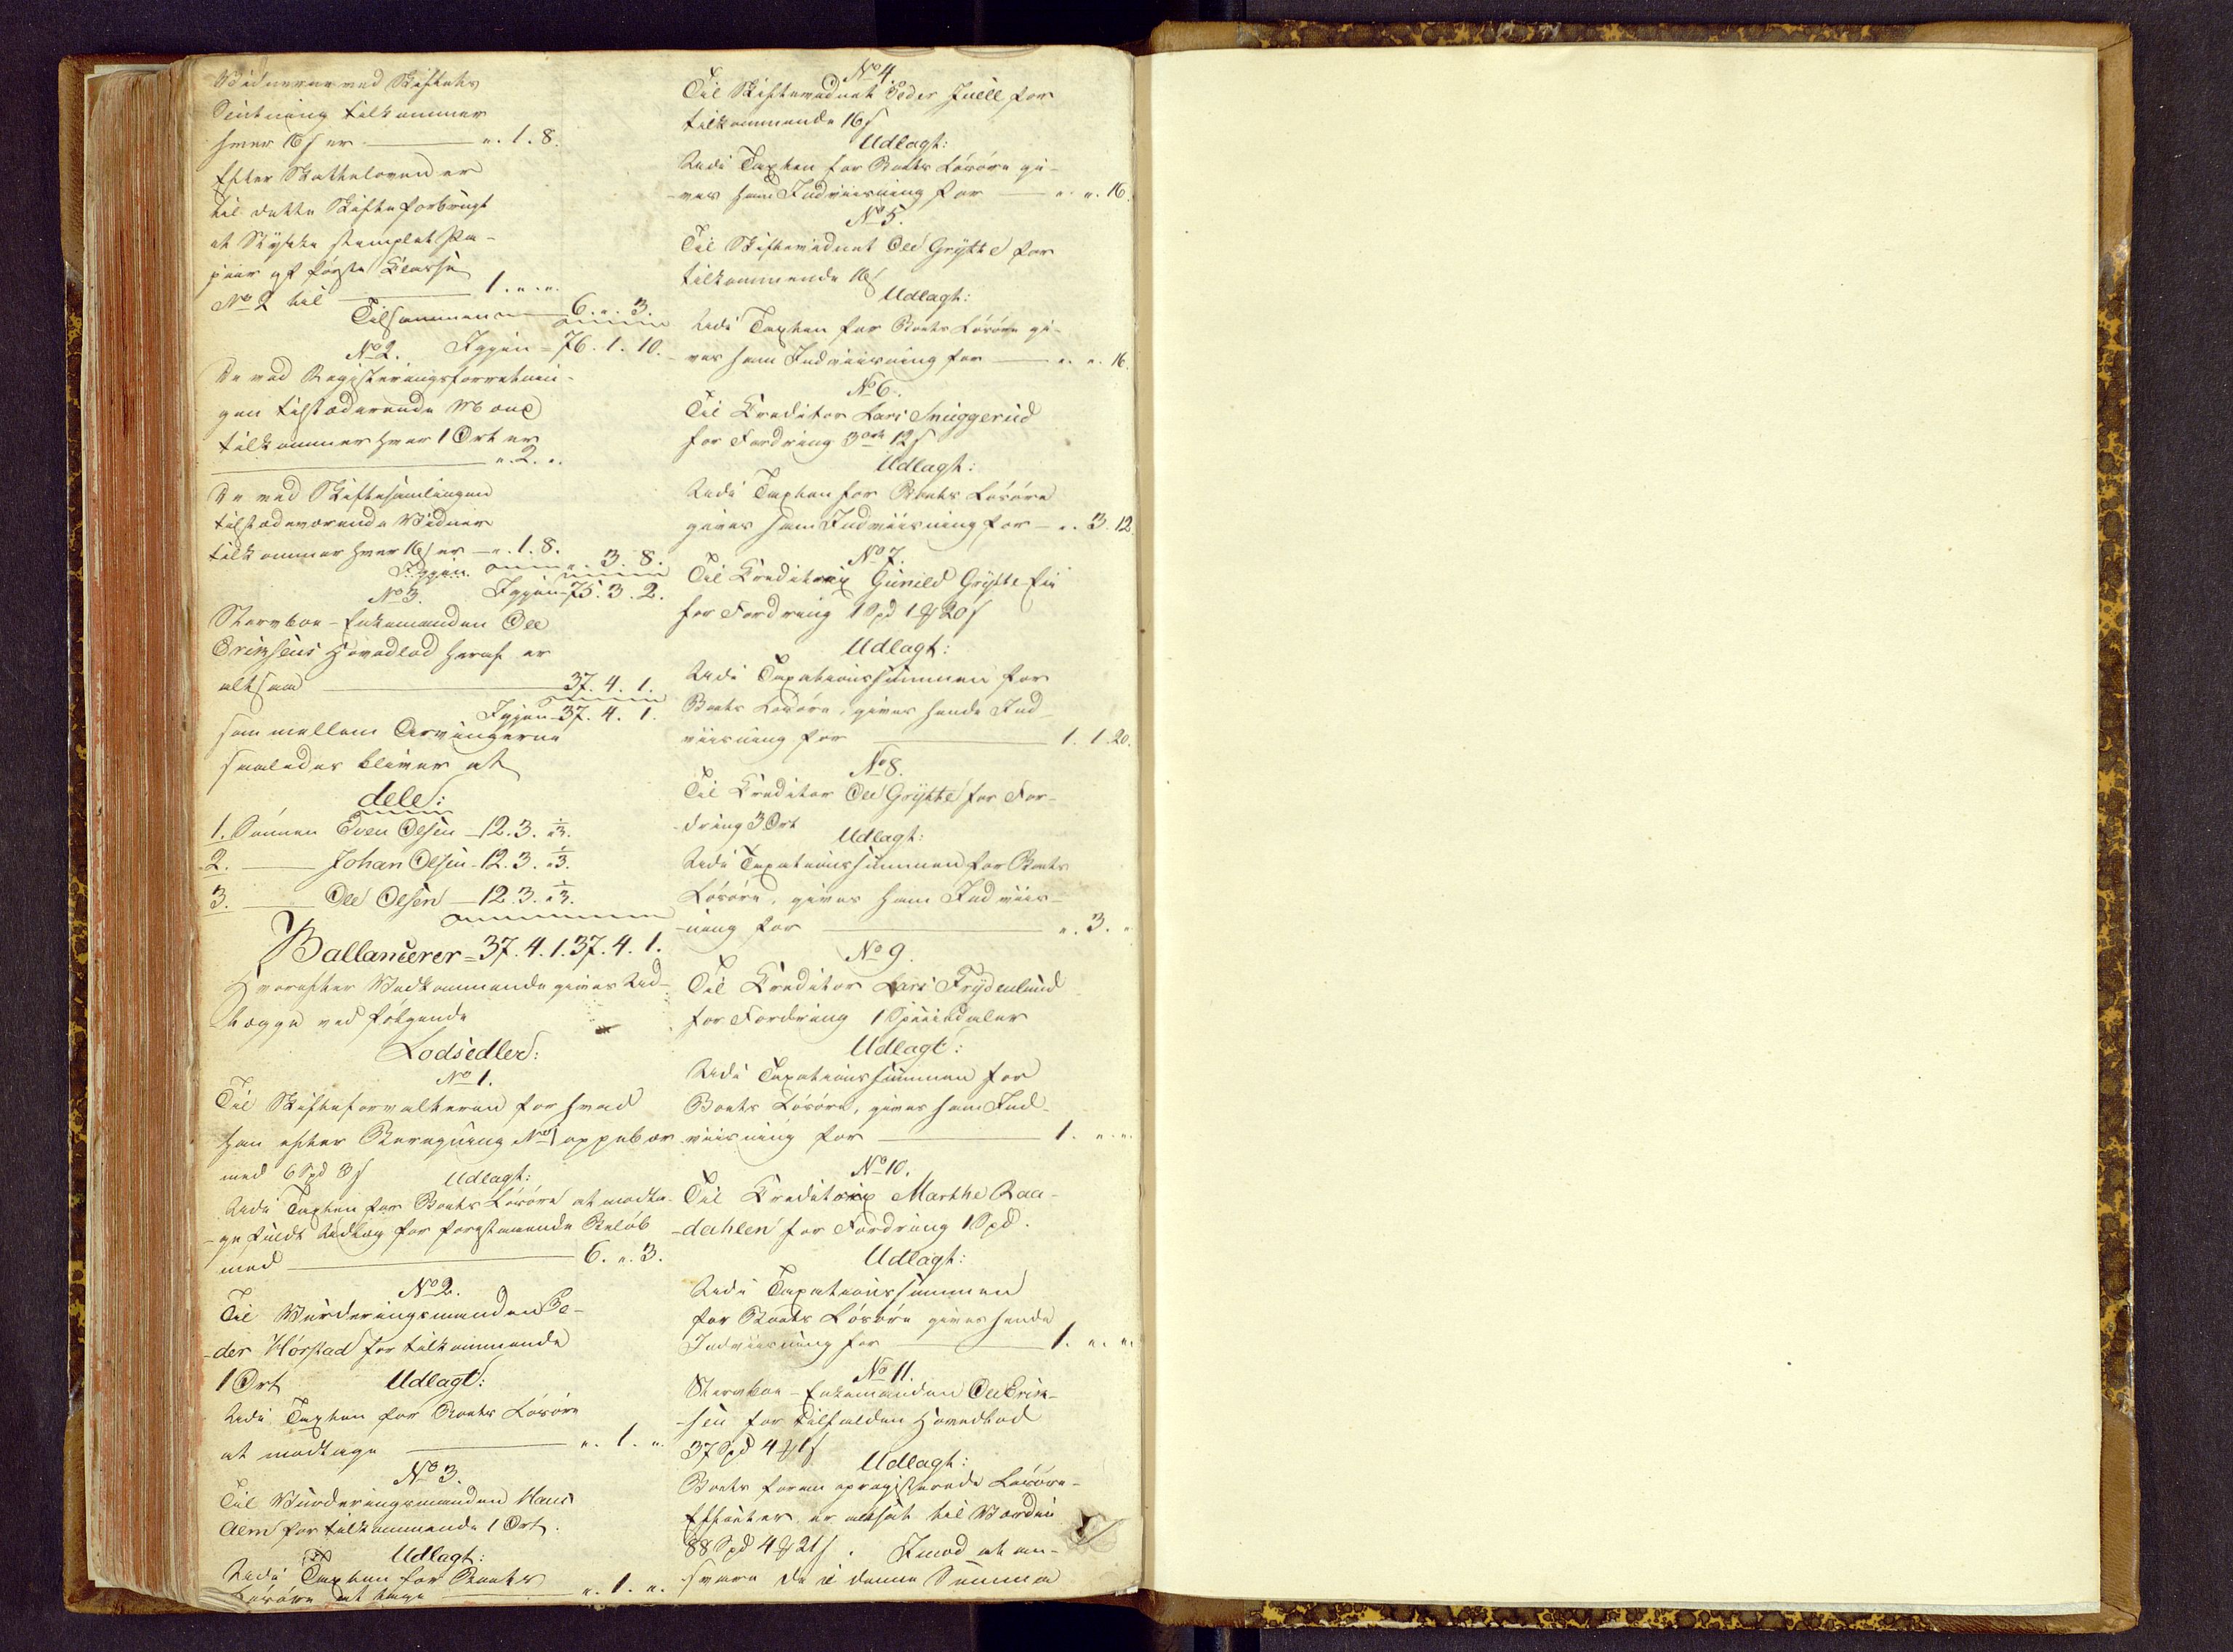 Vidnerne ved Skiftets
Slutning tilkommer
hver 16 s er — ". 1. 8.
Efter Skatteloven er
til dette Skifte forbrugt
et Stykke stemplet Pa-
piir af første Classe
No 2 til — 1. ". ".
Tilsammen — 6. ". 3.
Igjen = 76. 1. 10.
No 2.
De ved Registeringsforretnin-
gen tilstædeværende Mænd
tilkommer hver 1 Ort er
— ". 2. ".
De ved Skiftesamlingen
tilstedeværende Vidner
tilkommer hver 16 s er — ". 1. 8.
". 3. 8.
Igjen 75. 3. 2.
No 3.
Stervboe-Enkemanden Ole
Eriksens Hovedlod heraf er
altsaa — 37. 4. 1.
Igjen 37. 4. 1.
som mellem Arvingerne
saaledes bliver at
dele:
1. Sønnen Even Olsen — 12. 3. 1/3.
2. — Johan Olsen — 12. 3. 1/3.
3. — Ole Olsen — 12. 3. 1/3.
Ballancerer = 37. 4. 1. 37. 4. 1.
Hvorefter Vedkommende gives Ud-
lægge ved følgende
Lodsedler:
No 1.
Til Skifteforvalteren for hvad
han efter Beregning No 1 oppebær
med 6 Spd 3 s
Udlagt:
Udi Taxten for Boets Løsøre at modta-
ge fuldt Udlæg for forestaaende Beløb
med — 6. ". 3.
No 2.
Til Vurderingsmanden Pe-
der Horstad for tilkommende
1 Ort
Udlagt:
Udi Taxten for Boets Løsøre
at modtage — ". 1. ".
No 3.
Til Vurderingsmanden Hans
Alm for tilkommende 1 Ort.
Udlagt:
Udi Taxten for Boets
Løsøre at tage — ". 1. ".
No 4.
Til Skiftevidnet Peder Juell for
tilkommende 16 s
Udlagt:
Udi Taxten for Boets Løsøre gi-
ves ham Indviisning for — ". ". 16.
No 5.
Til Skiftevidnet Ole Grytte for
tilkommende 16 s
Udlagt:
Udi Taxten for Boets Løsøre gi-
ves ham Indviisning for — ". ". 16.
No 6.
Til Creditor Lars Snuggerud
for Fordring 3 Ort 12 s
Udlagt:
Udi Taxten for Boets Løsøre
gives ham Indviisning for — ". 3. 12
No 7.
Til Creditrix Gunild Grytte Eie
for Fordring 1 Spd 1 Ort 20 s
Udlagt:
Udi Taxationssummen for
Boets Løsøre, gives hende Ind-
viisning for — 1. 1. 20.
No 8.
Til Creditor Ole Grytte for For-
dring 3 Ort
Udlagt:
Udi Taxationssummen for Boets
Løsøre, gives ham Indviis-
ning for — ". 3. "
No 9.
Til Creditor Lars Frydenlund
for Fordring 1 Speciedaler
Udlagt:
Udi Taxationssummen for
Boets Løsøre, gives ham Ind-
viisning for — 1. ". ".
No 10.
Til Creditorix Marthe Raa-
dahlen for Fordring 1 Spd.
Udlagt:
Udi Taxationssummen
for Boets Løsøre gives hende
Indviisning for — 1. ". ".
No 11.
Stervboe-Enkemanden Ole Erik-
sen for tilfalden Hovedlod
37 Spd 4 Ort 1 s
Udlagt:
Boets foran opregistrerede Løsøre-
Effecter er altsat til Værdie
88 Spd 4 Ort 21 s. Imod at an-
svare de i denne Summa